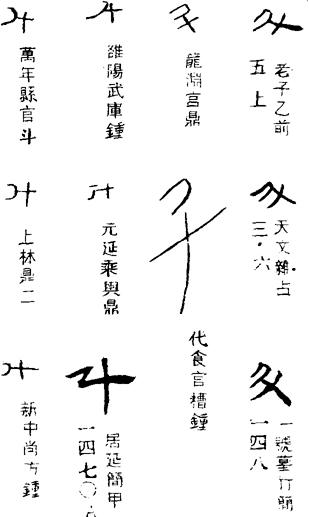 老子乙前
五上
天文雜占
三·六
一號墓竹簡
一四八
龍淵宮鼎
代食官糟鍾
雒陽武庫鍾
元延乘輿鼎
居延簡甲
一四七〇
萬年縣官斗
上林鼎二
新中尚方鍾